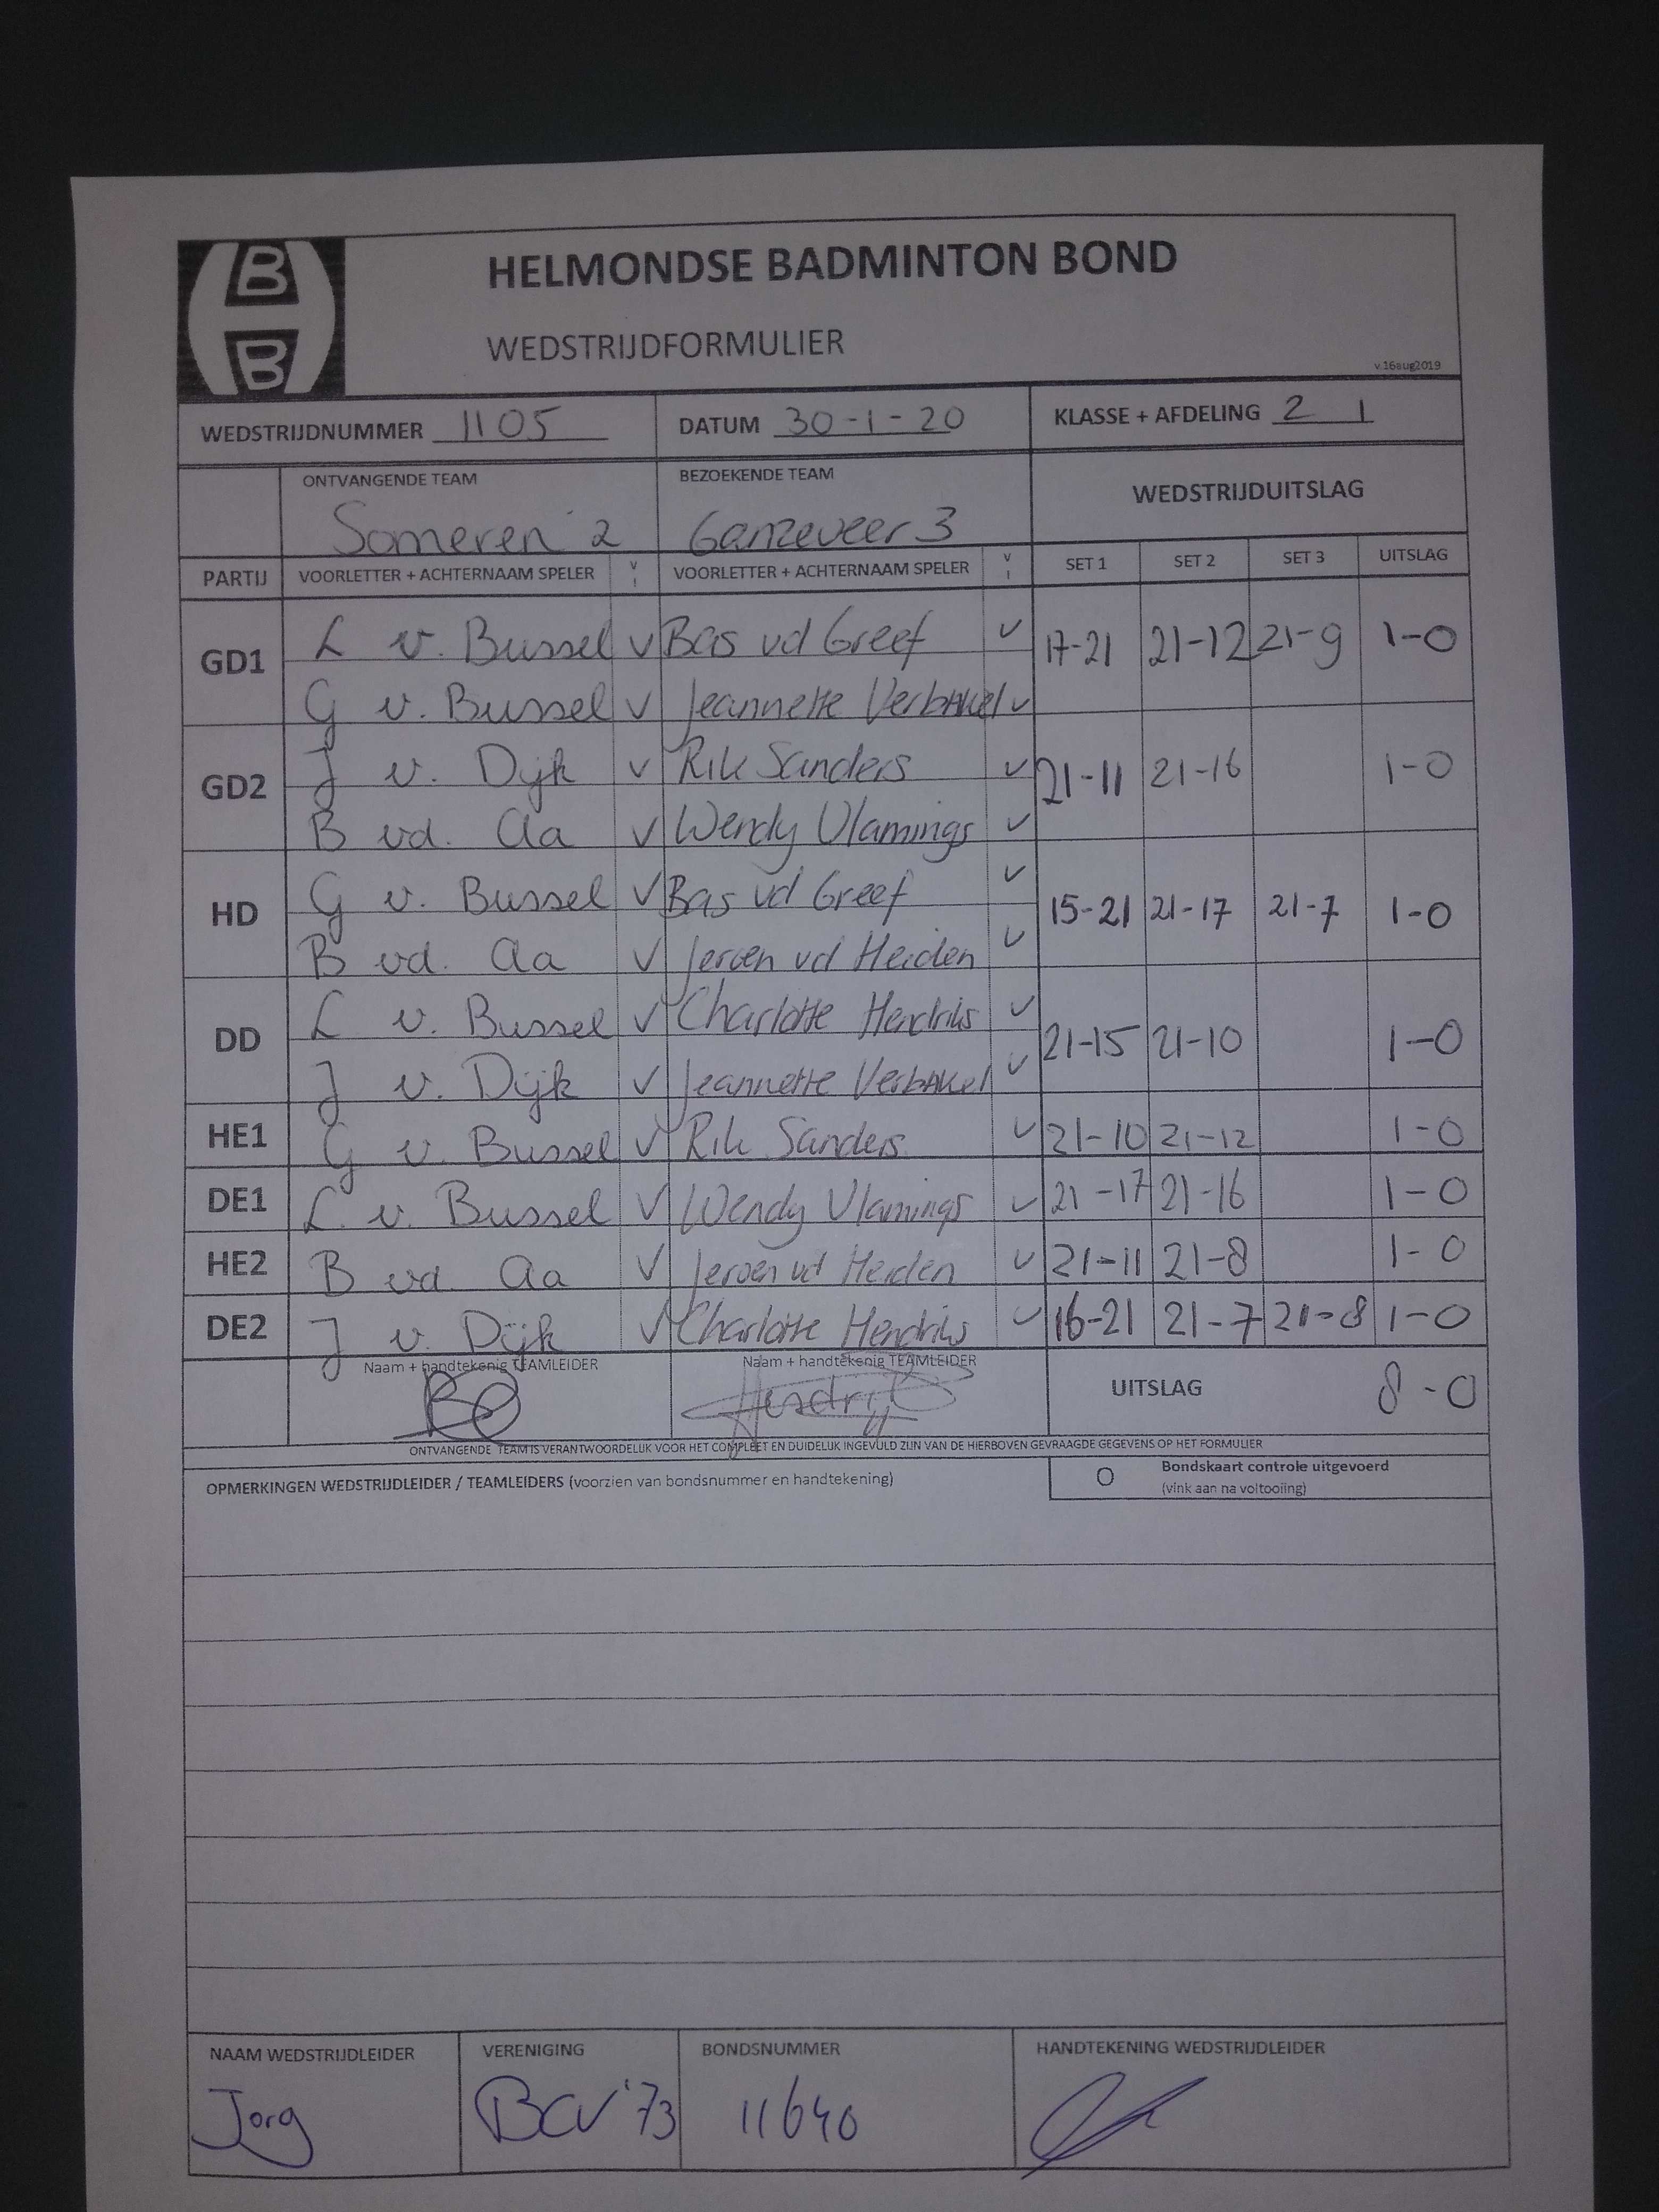 B
B
HELMONDSE BADMINTON BOND
WEDSTRIJDFORMULIER
v.16aug2019
WEDSTRIJDNUMMER 1105 DATUM 30-1-20 KLASSE + AFDELING 2 1
ONTVANGENDE TEAM BEZOEKENDE TEAM WEDSTRIJDUITSLAG
Someren 2 Ganzeveer 3
PARTIJ VOORLETTER + ACHTERNAAM SPELER V ! VOORLETTER + ACHTERNAAM SPELER V ! SET 1 SET 2 SET 3 UITSLAG
GD1 L v. Bussel v Bas vd Greef v 17-21 21-12 21-9 1-0
G v. Bussel v Jeannette Verbakel v
GD2 J v. Dijk v Rik Sanders v 21-11 21-16 1-0
B vd. Aa v Wendy Vlamings v
HD G v. Bussel v Bas vd Greef v 15-21 21-17 21-7 1-0
B vd. Aa v Jeroen vd Heiden v
DD L v. Bussel v Charlotte Hendriks v 21-15 21-10 1-0
J v. Dijk v Jeannette Verbakel v
HE1 G v. Bussel v Rik Sanders v 21-10 21-12 1-0
DE1 L. v. Bussel v Wendy Vlamings v 21-17 21-16 1-0
HE2 B vd Aa v Jeroen vd Heiden v 21-11 21-8 1-0
DE2 J v. Dijk v Charlotte Hendriks v 16-21 21-7 21-8 1-0
Naam + handtekenig TEAMLEIDER Naam + handtekenig TEAMLEIDER
UITSLAG 8-0
ONTVANGENDE TEAM IS VERANTWOORDELIJK VOOR HET COMPLEET EN DUIDELIJK INGEVULD ZIJN VAN DE HIERBOVEN GEVRAAGDE GEGEVENS OP HET FORMULIER
OPMERKINGEN WEDSTRIJDLEIDER / TEAMLEIDERS (voorzien van bondsnummer en handtekening)
O Bondskaart controle uitgevoerd
(vink aan na voltooiing)
NAAM WEDSTRIJDLEIDER VERENIGING BONDSNUMMER HANDTEKENING WEDSTRIJDLEIDER
Jorg BCV '73 11640